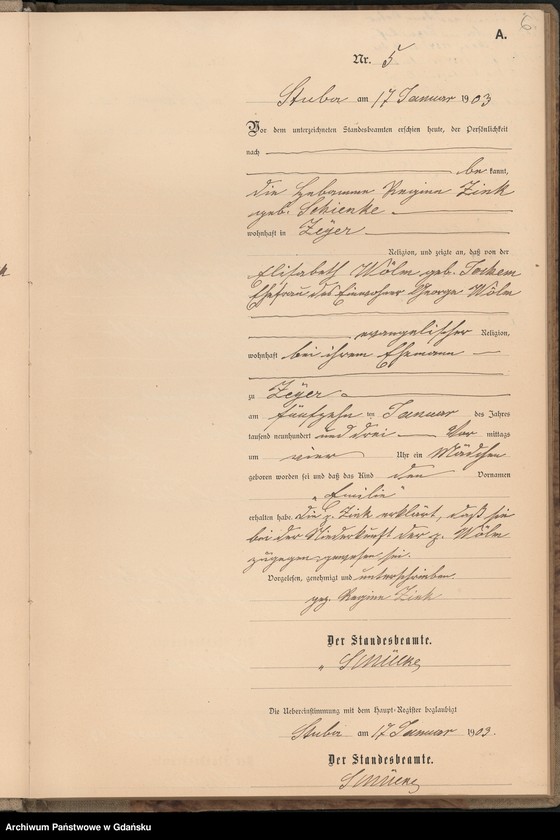 6.
A.
Nr. 5
Stuba am 17 Januar 1903
Vor dem unterzeichneten Standesbeamten erschien heute, der Persönlichkeit
nach
bekannt,
die Hebamme Regina Zink
geb. Schienke
wohnhaft in Zeyer
Religion, und zeigte an, daß von der
Elisabeth Wölm geb. Jochem
Ehefrau des Einwohner George Wölm
evangelischer Religion,
wohnhaft bei ihrem Ehemann
zu Zeyer
am fünfzehn ten Januar des Jahres
tausend neunhundert und drei Vor mittags
um vier Uhr ein Mädchen
geboren worden sei und daß das Kind den Vornamen
„Emilie“
erhalten habe. Die p. Zink erklärt, daß sie
bei der Niederkunft der p. Wölm
zugegen gewesen sei.
Vorgelesen, genehmigt und unterschrieben.
gez. Regina Zink
Der Standesbeamte.
Die Uebereinstimmung mit dem Haupt-Register beglaubigt
Stuba am 17 Januar 1903.
Der Standesbeamte.
Archiwum Państwowe w Gdańsku